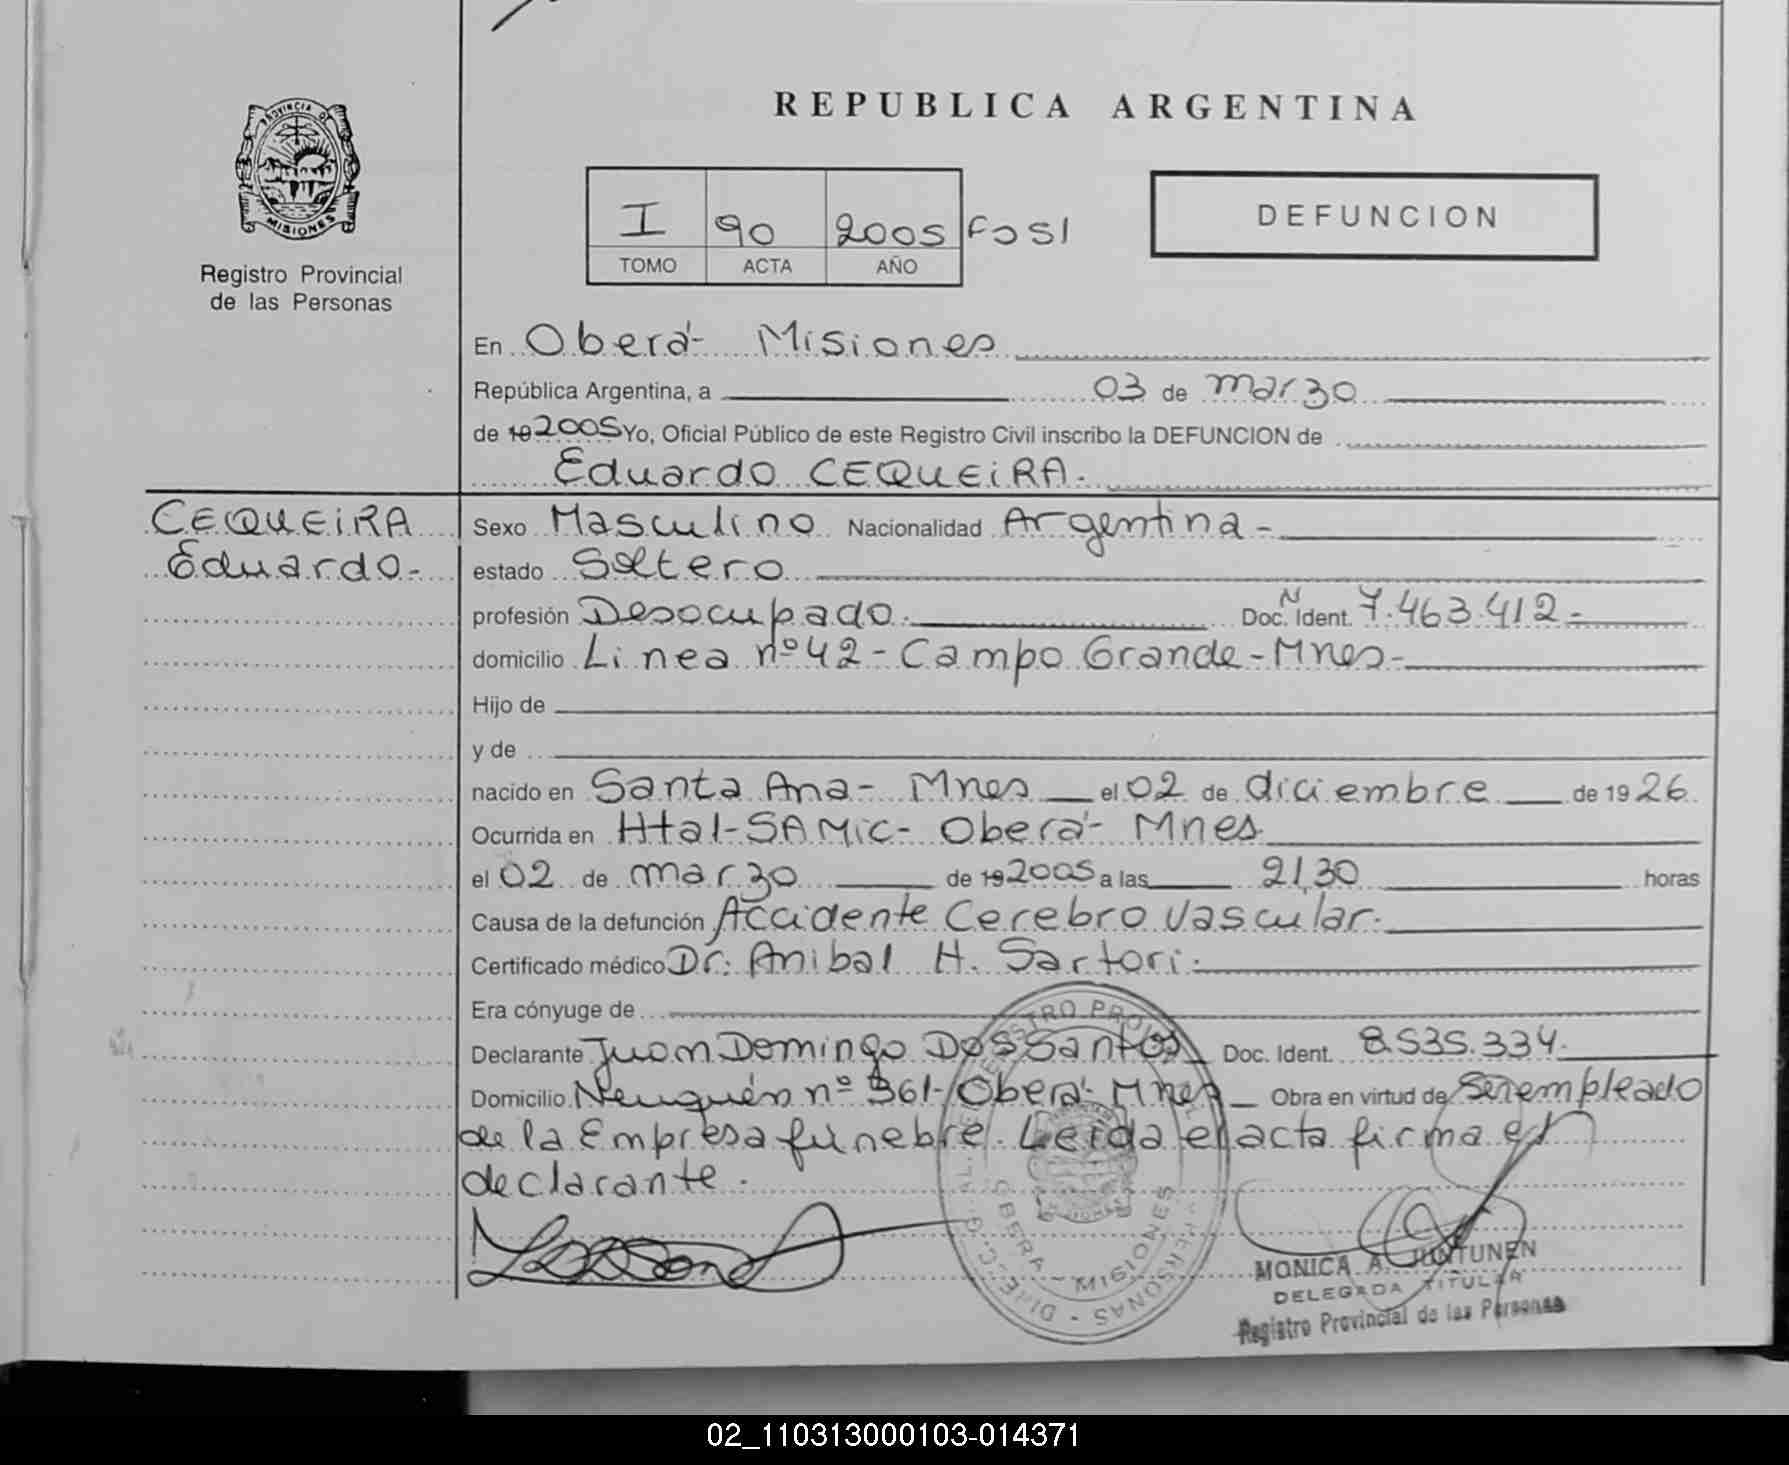 REPUBLICA ARGENTINA
PROVINCIA DE
MISIONES
Registro Provincial
de las Personas
I 90 2005 Fº51
TOMO ACTA AÑO
DEFUNCION
En Oberá- Misiones
República Argentina, a 03 de marzo
de 19 2005 Yo, Oficial Público de este Registro Civil inscribo la DEFUNCION de
Eduardo CEQUEiRA.
CEQUEiRA
Eduardo.-
Sexo Masculino Nacionalidad Argentina -
estado Soltero
profesión Desocupado. Doc. N Ident. 7.463.412.-
domicilio Linea nº42- Campo Grande - Mnes-
Hijo de
y de
nacido en Santa Ana- Mnes el 02 de diciembre de 1926.
Ocurrida en Htal-SAMic- Oberá- Mnes
el 02 de marzo de 19 2005 a las 21,30 horas
Causa de la defunción Accidente Cerebro Vascular.
Certificado médico Dr. Anibal H. Sartori.
Era cónyuge de
Declarante Juan Domingo Dos Santos Doc. Ident. 8.535.334.
Domicilio Neuquén nº 361-Oberá- Mnes Obra en virtud de Ser empleado
de la Empresa fúnebre. Leida el acta firma el
declarante.
OBERA - MISIONES
MONICA A. JUNTUNEN
DELEGADA TITULAR
Registro Provincial de las Personas
02_110313000103-014371